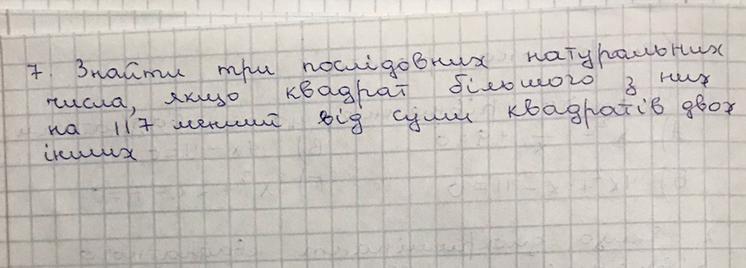 7. Знайти три послідовних натуральних
числа, якщо квадрат більшого з них
на 117 менший від суми квадратів двох
інших